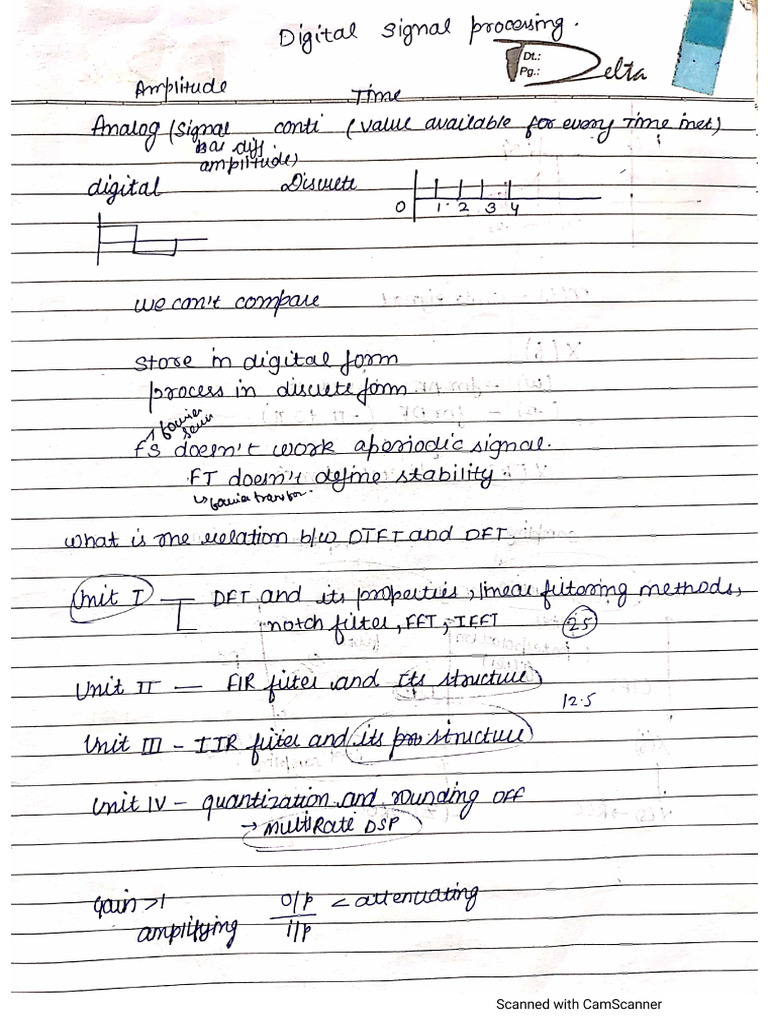 Digital signal processing.
Dt.:
Pg.:
Delta
Amplitude Time
Analog (signal conti (value available for every Time inst)
has diff
amplitude)
digital Discrete
0 1 2 3 4
we can't compare
store in digital form
process in discrete form
fourier
series
FS doesn't work aperiodic signal.
FT doesn't define stability.
↳ fourier transfor.
what is the relation b/w DTFT and DFT
Unit I — DFT and its properties, linear filtering methods,
notch filter, FFT, IFFT 25
Unit II — FIR filter and its structure
12.5
Unit III - IIR filter and its structure
Unit IV - quantization and rounding OFF
→ MultiRate DSP
gain >1 O/P < attenuating
amplifying I/P
Scanned with CamScanner